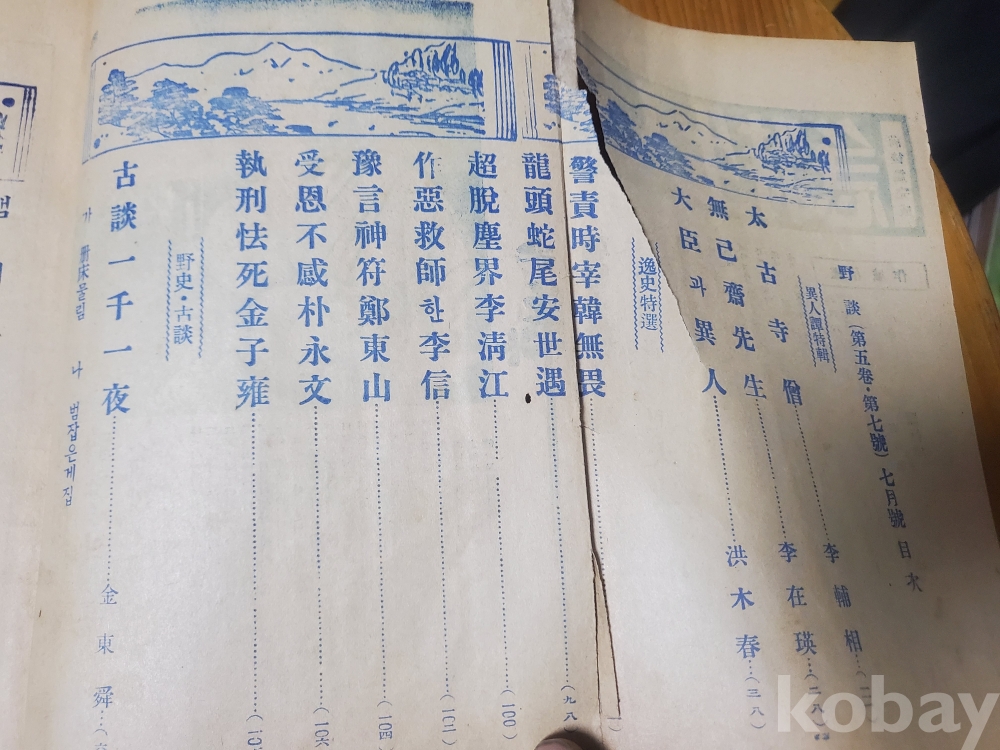 野談(第五卷・第七號)七月號 目次
異人譚特輯
太古寺僧……李輔相
無己齋先生……李在瑛…(二八)
大臣과異人……洪木春…(三八)
逸史特選
警責時宰韓無畏
龍頭蛇尾安世遇……(九八
超脫塵界李淸江……(100)
作惡救師한李信……(101)
豫言神符鄭東山……(104)
受恩不感朴永文……(106
執刑怯死金子雍……(10
野史・古談
古談一千一夜……金東舜…(
가 冊床물림
나 범잡은게집
kobay